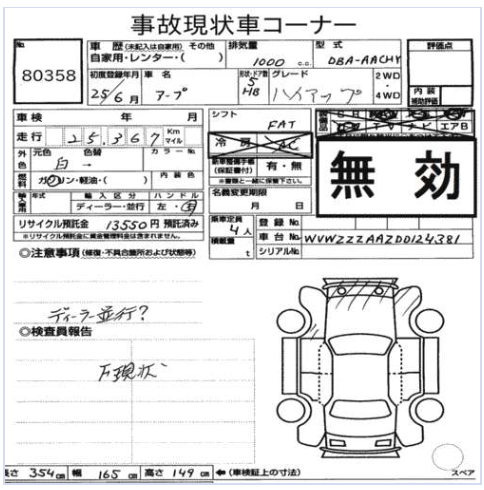 事故現状車コーナー
No.
80358
車歴 (未記入は自家用) その他
自家用・レンター・( )
排気量
1000 c.c.
型式
DBA-AACHY
評価点
初度登録年月
25/6月
車名
アープ
形状・ドア数
5
HB
グレード
ハイアップ
2WD
・
4WD
内装
補助評価
車検 年 月
シフト
FAT
走行 25,367 Km マイル
冷房 AC
エアB
無効
外色
元色 色替 カラーNo.
白 →
新車整備手帳
(保証書付)
有・無
※書類と一緒に保管下さい。
燃料
ガソリン・軽油・( )
内装色
名義変更期限
月 日
輸入車用
年式 輸入区分 ハンドル
ディーラー・並行 左・右
リサイクル預託金 13550円 預託済み
※リサイクル預託金に資金管理料金は含まれません。
乗車定員
4人
積載量
t
登録No.
車台No. WVWZZZAAZDD124381
シリアルNo.
◎注意事項 (修復・不具合箇所および状態等)
ディーラー並行?
◎検査員報告
下現状
長さ 354cm 幅 165cm 高さ 149cm ←(車検証上の寸法)
スペア